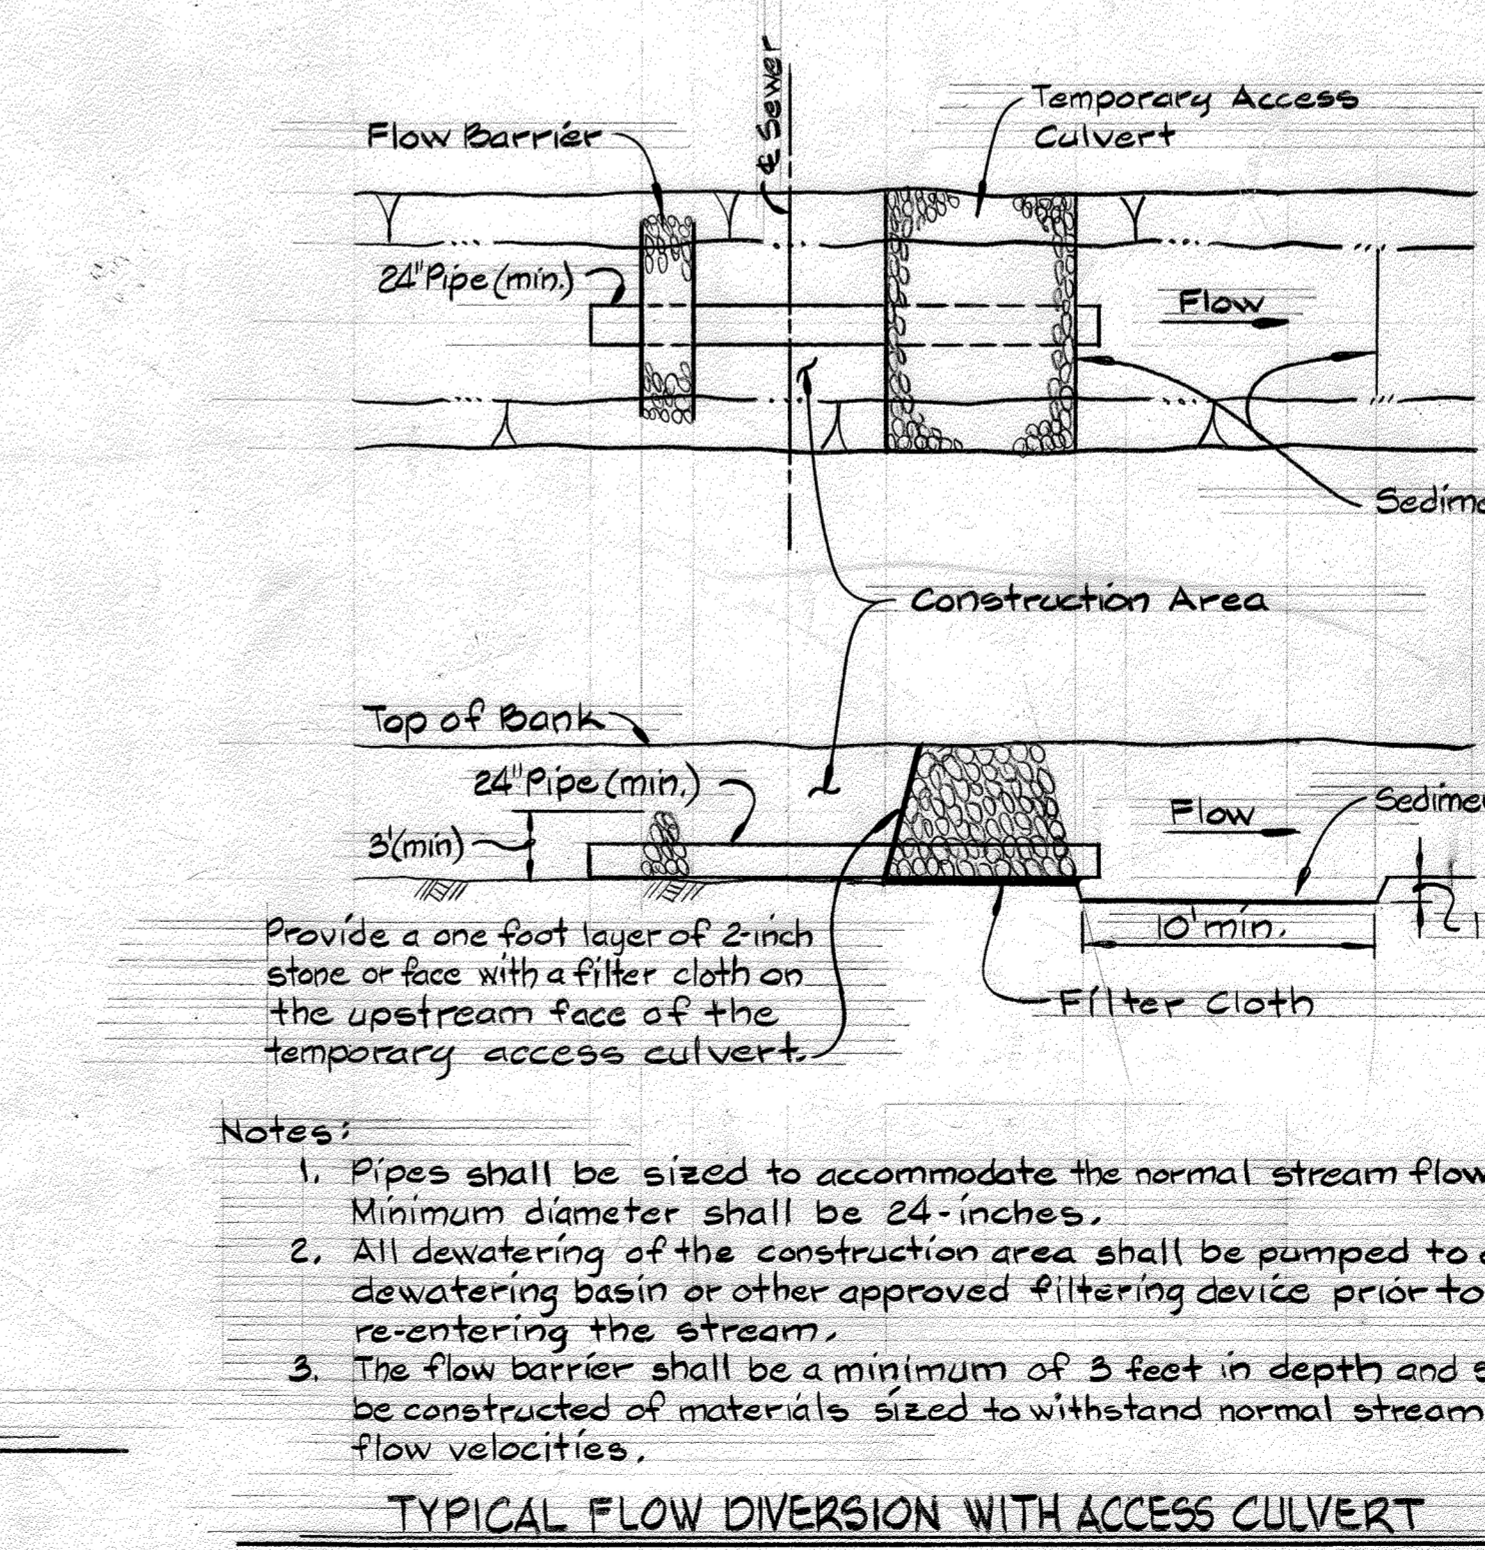 ℄ Sewer
Temporary Access
Culvert
Flow Barrier
24" Pipe (min.)
Flow
Construction Area
Top of Bank
24" Pipe (min.)
Flow
3'(min)
10' min.
Provide a one foot layer of 2-inch
stone or face with a filter cloth on
the upstream face of the
temporary access culvert.
Filter Cloth
Notes:
1. Pipes shall be sized to accommodate the normal stream flow
Minimum diameter shall be 24-inches.
2. All dewatering of the construction area shall be pumped to
dewatering basin or other approved filtering device prior to
re-entering the stream.
3. The flow barrier shall be a minimum of 3 feet in depth and
be constructed of materials sized to withstand normal stream
flow velocities.
TYPICAL FLOW DIVERSION WITH ACCESS CULVERT